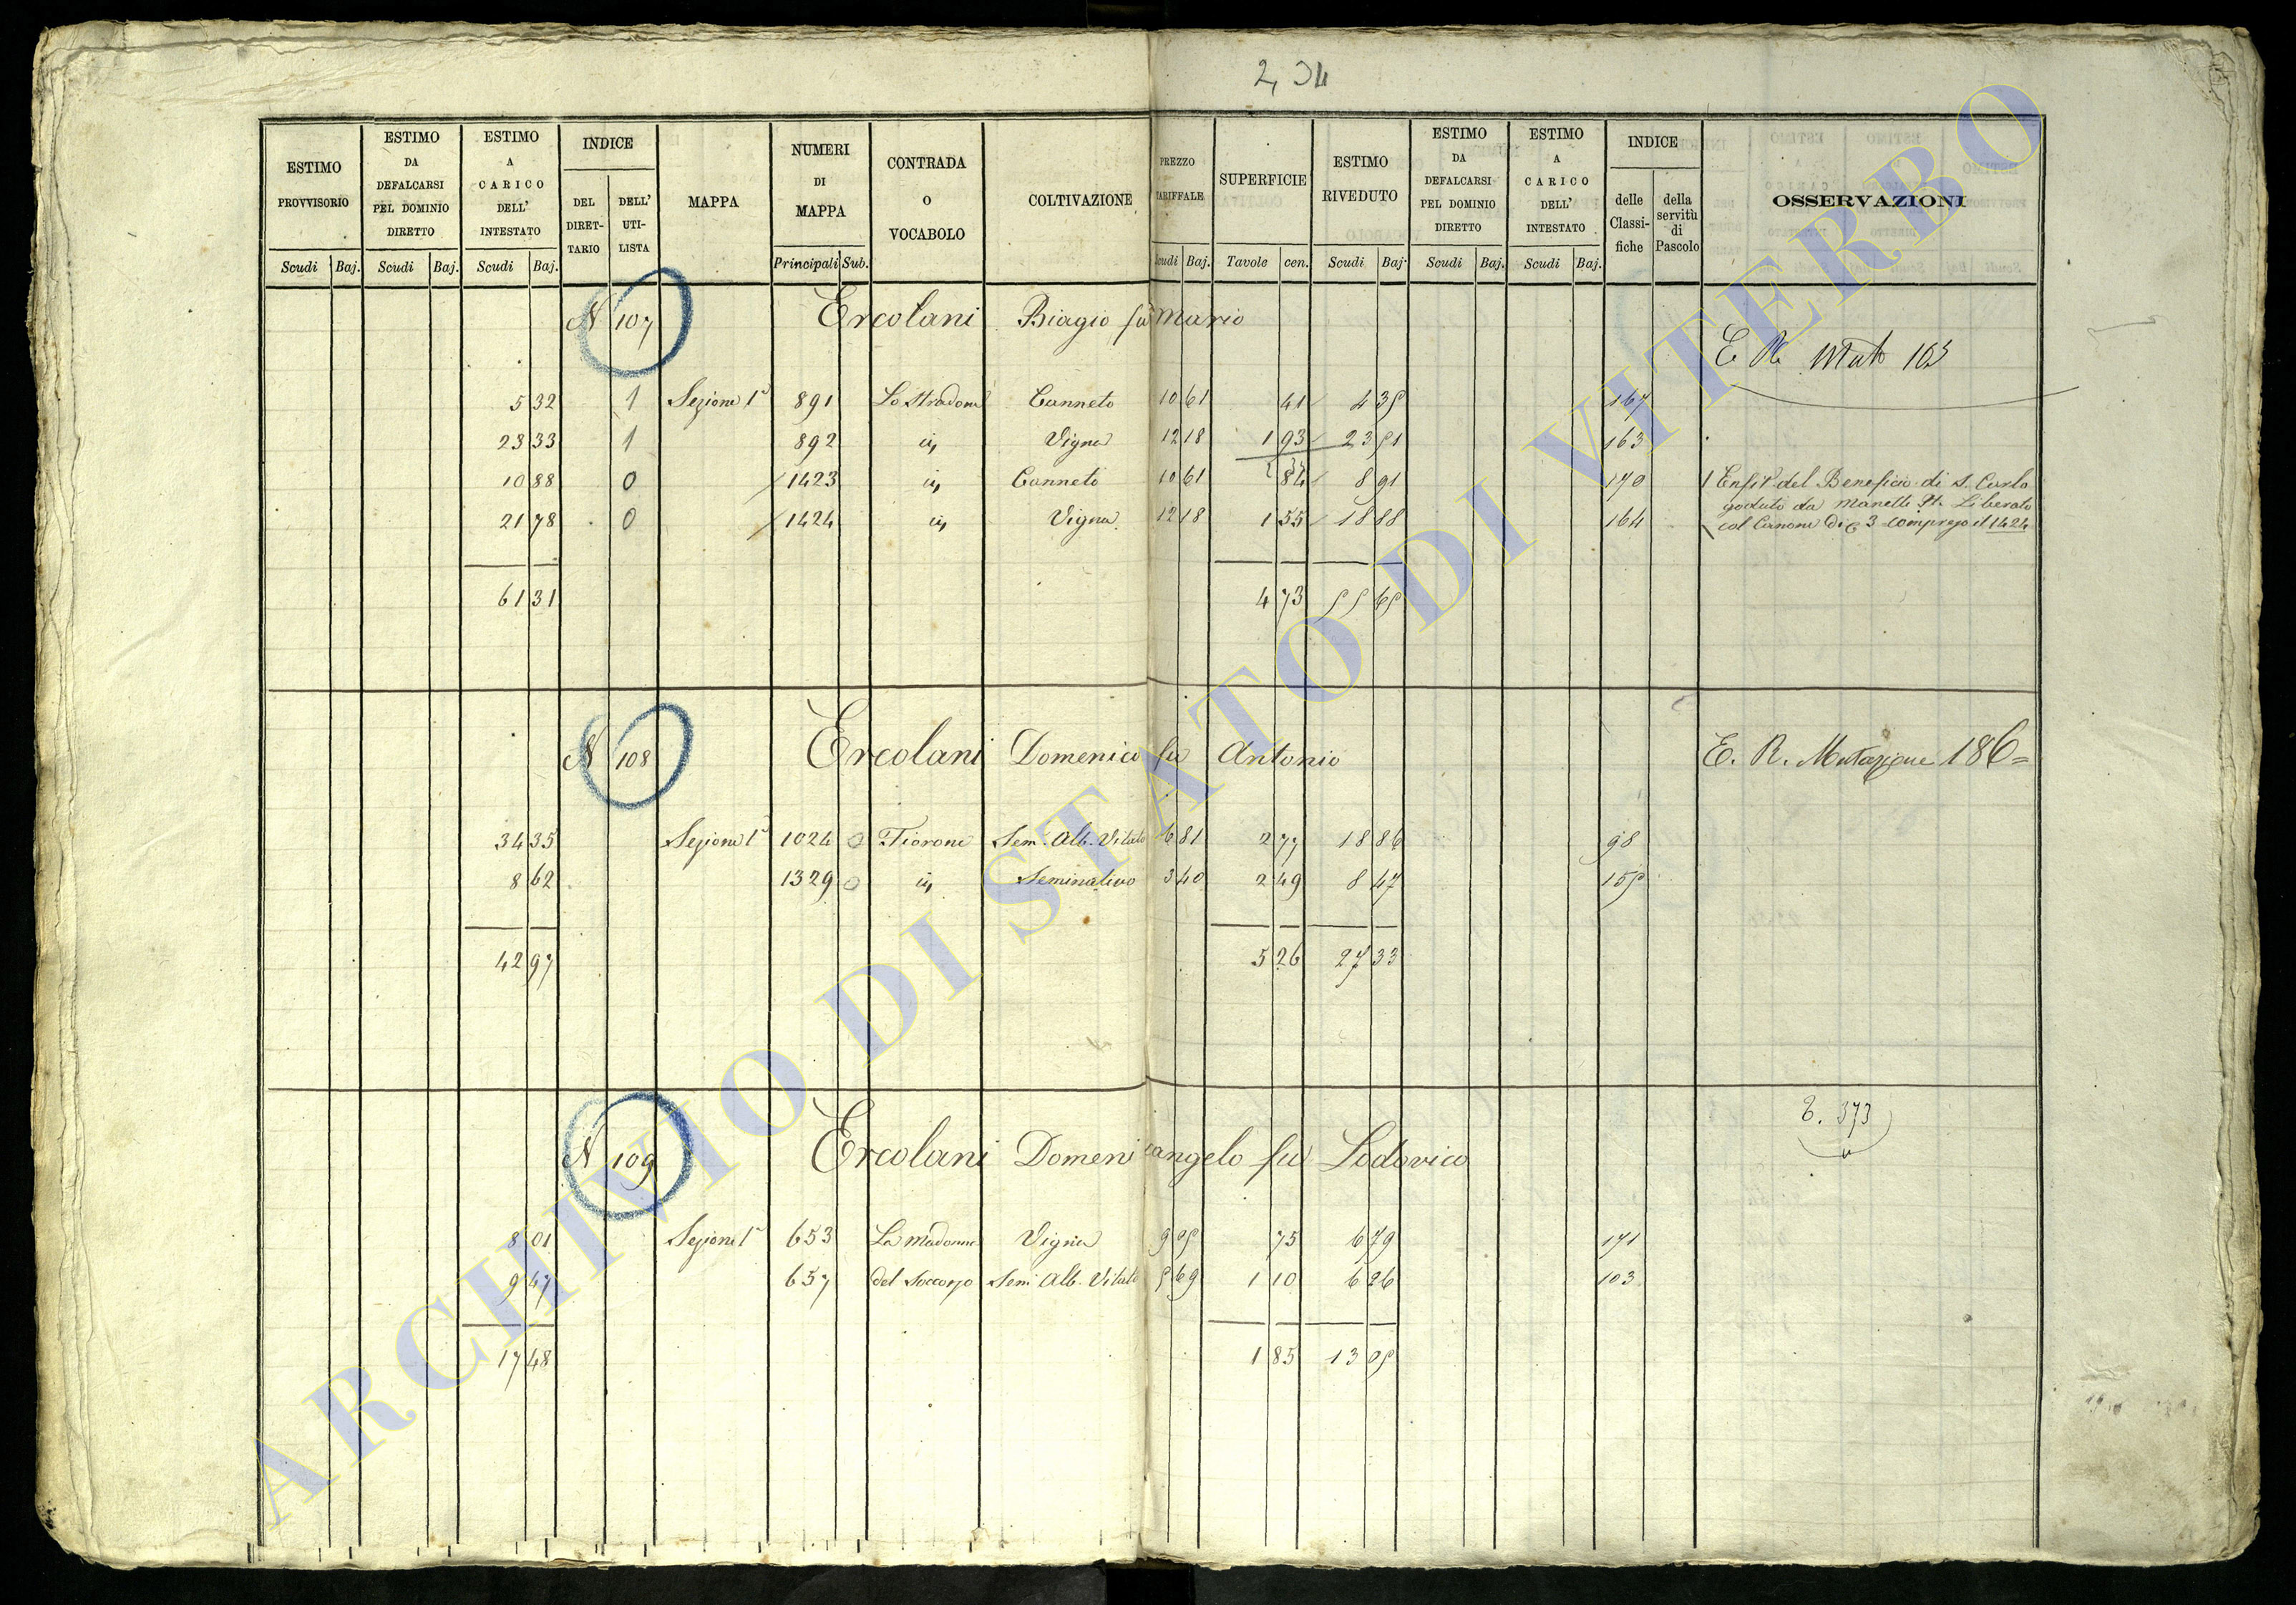 2,34
ESTIMO PROVVISORIO
ESTIMO DA DEFALCARSI PEL DOMINIO DIRETTO
ESTIMO A CARICO DELL' INTESTATO
INDICE
DEL DIRET-TARIO
DELL' UTI-LISTA
MAPPA
NUMERI DI MAPPA
CONTRADA O VOCABOLO
COLTIVAZIONE
PREZZO TARIFFALE
SUPERFICIE
ESTIMO RIVEDUTO
ESTIMO DA DEFALCARSI PEL DOMINIO DIRETTO
ESTIMO A CARICO DELL' INTESTATO
INDICE
delle Classi-fiche
della servitù di Pascolo
OSSERVAZIONI
Scudi Baj. Scudi Baj. Scudi Baj. Principali Sub. Scudi Baj. Tavole cen. Scudi Baj. Scudi Baj. Scudi Baj.
N 107 Ercolani Biagio fu Mario
E. R. Mut 163
5 32 1 Sezione 1ª 891 Lo Stradone Canneto 10 61 41 4 35 167
23 33 1 892 id Vigna 12 18 1 93 23 51 163
10 88 0 1423 id Canneto 10 61 84 8 91 170 Enfit. del Beneficio di S. Carlo
goduto da Manelli Liberato
21 78 0 1424 id Vigna 12 18 1 55 18 88 164 col Canone di 3 compreso il 1424
61 31 4 73 55 65
N 108 Ercolani Domenico fu Antonio E. R. Mutazione 186=
34 35 Sezione 1ª 1024 0 Fiorone Sem. Alb. Vitato 6 81 2 77 18 86 98
8 62 1329 0 id Seminativo 3 40 2 49 8 47 155
42 97 5 26 27 33
373
N 109 Ercolani Domenicangelo fu Lodovico
8 01 Sezione 1ª 653 La Madonna Vigna 9 05 75 6 79 171
9 47 657 del Soccorso Sem. Alb. Vitato 5 69 1 10 6 26 103
17 48 1 85 13 05
ARCHIVIO DI STATO DI VITERBO